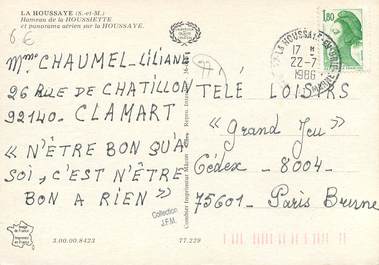 LA HOUSSAYE (S.-et-M.)
Hameau de la HOUSSIETTE
et panorama aérien sur la HOUSSAYE.
6€
Mme CHAUMEL-LILIANE
26 RUE DE CHATILLON
92140. CLAMART
« N'ÊTRE BON QU'A
SOI, C'EST N'ÊTRE
BON A RIEN »
1,80
17 H
22-7
1986
TÉLÉ LOISIRS
« Grand Jeu »
Cédex - 8004 -
75601 - Paris Brune
Combier Imprimeur Mâcon
Collection
J.F.M.
3.00.00.8423
77.229